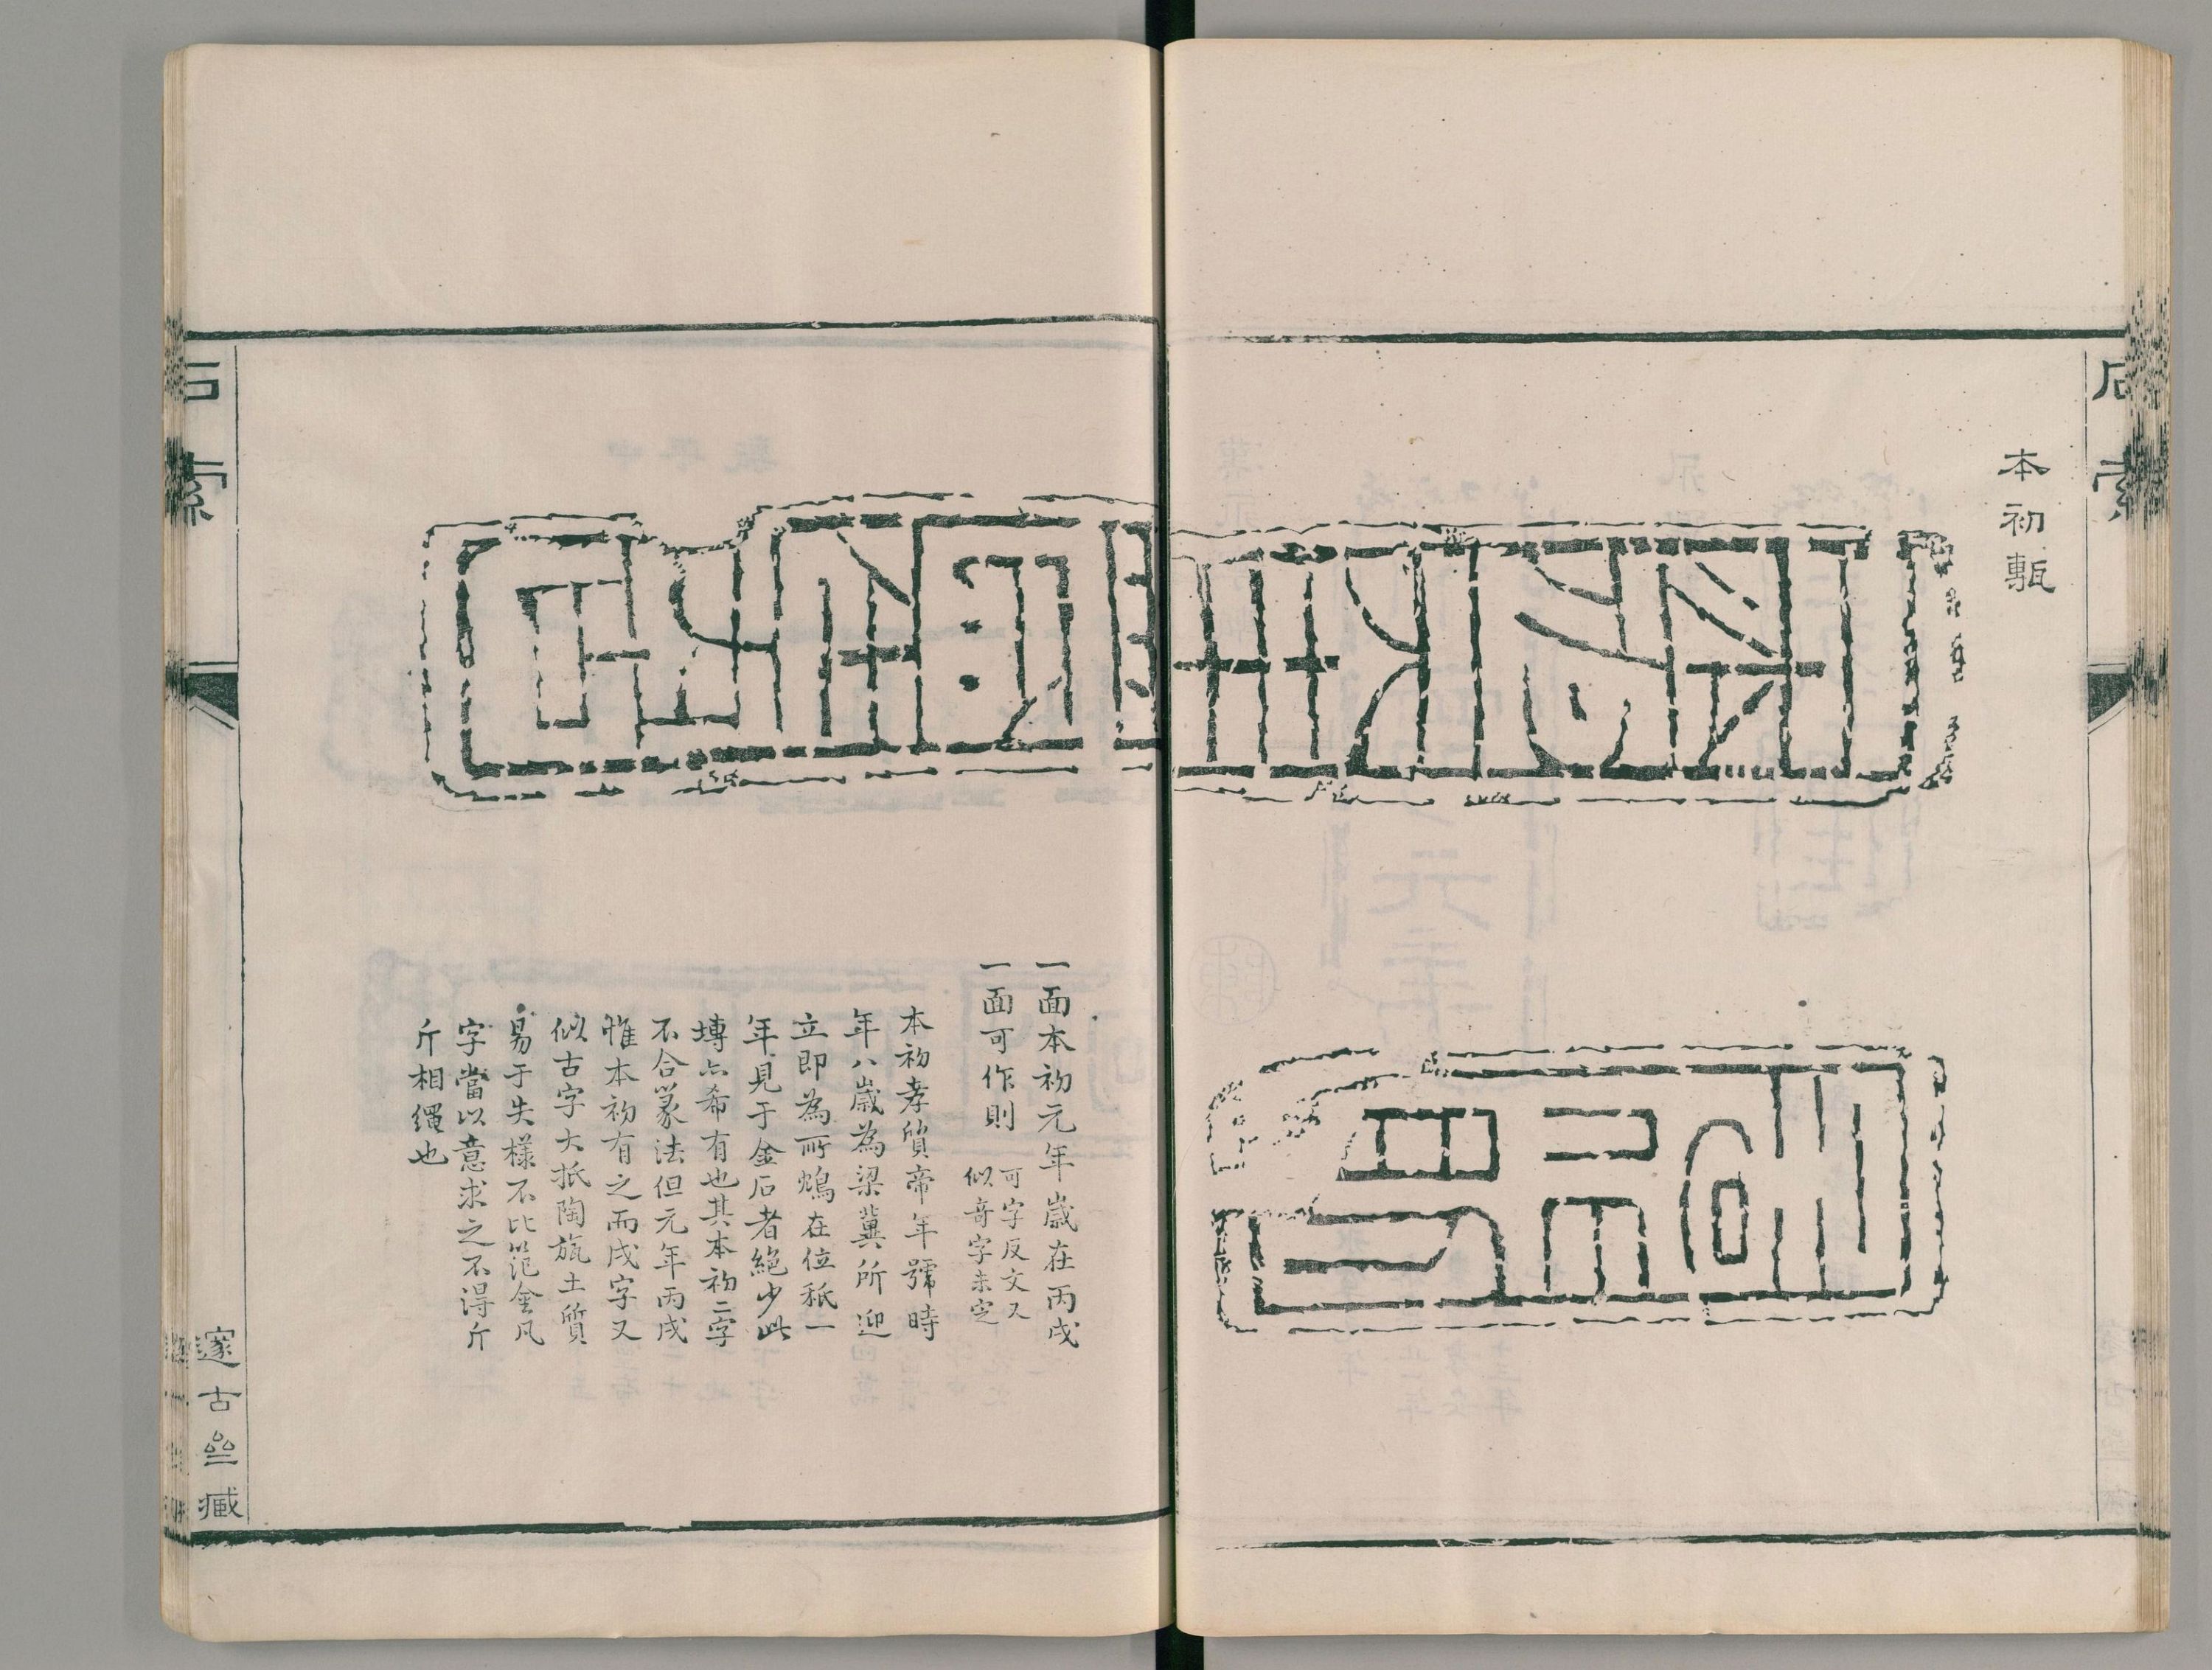 石索
本初甎
一面本初元年歲在丙戌
一面可作則
可字反文又
似奇字未定
本初孝質帝年號時
年八歲為梁冀所迎
立即為所鴆在位秖一
年見于金石者絕少此
塼亦希有也其本初二字
不合篆法但元年丙戌
惟本初有之而戌字又
似古字大抵陶瓬土質
易于失樣不比笵金凡
字當以意求之不得斤
斤相繩也
石索
邃古𠫤藏